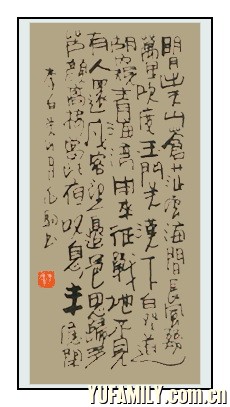 明月出天山蒼茫雲海間長風幾
萬里吹度玉門關漢下白登道
胡窺青海灣由來征戰地不見
有人還戍客望邊邑思歸多
苦顏高樓當此夜叹息未應閑
李白關山月
書
YUFAMILY.com.cn